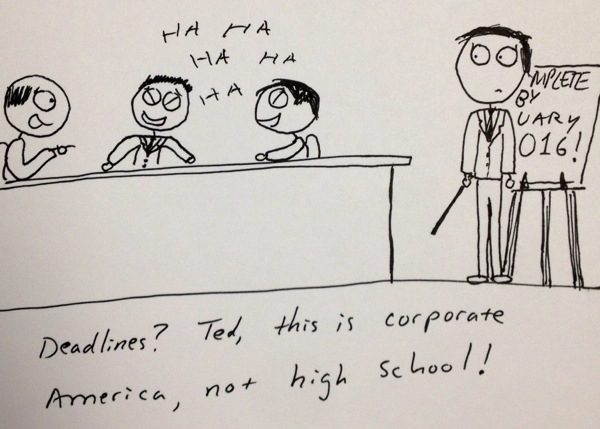 HA HA
HA HA
HA
MPLETE
BY
UARY
016!
Deadlines? Ted, this is corporate
America, not high school!